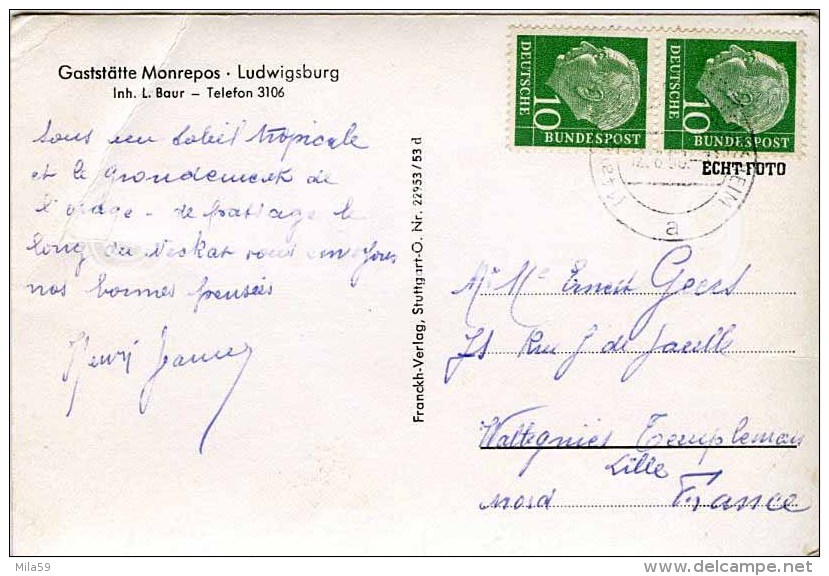 Gaststätte Monrepos · Ludwigsburg
Inh. L. Baur – Telefon 3106
sous un soleil tropicale
et le grondement de
l'orage - de passage le
long du Neskar vous envoyons
nos bonnes pensées
Henri
Franckh-Verlag, Stuttgart-O. Nr. 22953/53 d
DEUTSCHE
10
BUNDESPOST
DEUTSCHE
10
BUNDESPOST
ECHT-FOTO
a
Mr Me Ernest Geers
Rue J de
Wattignies Templemars
Lille
Nord France
Mila59
www.delcampe.net